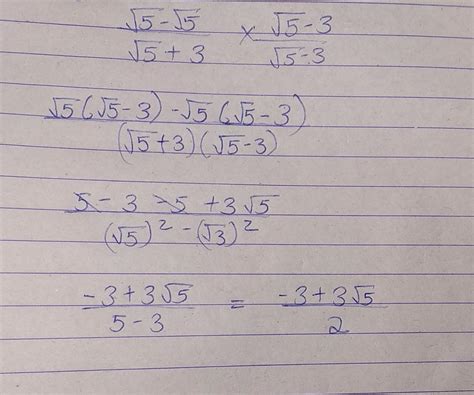 (√5 - √5)/(√5 + 3) × (√5 - 3)/(√5 - 3)
(√5(√5 - 3) - √5(√5 - 3))/((√5 + 3)(√5 - 3))
(5 - 3 - 5 + 3√5)/((√5)² - (√3)²)
(-3 + 3√5)/(5 - 3) = (-3 + 3√5)/2